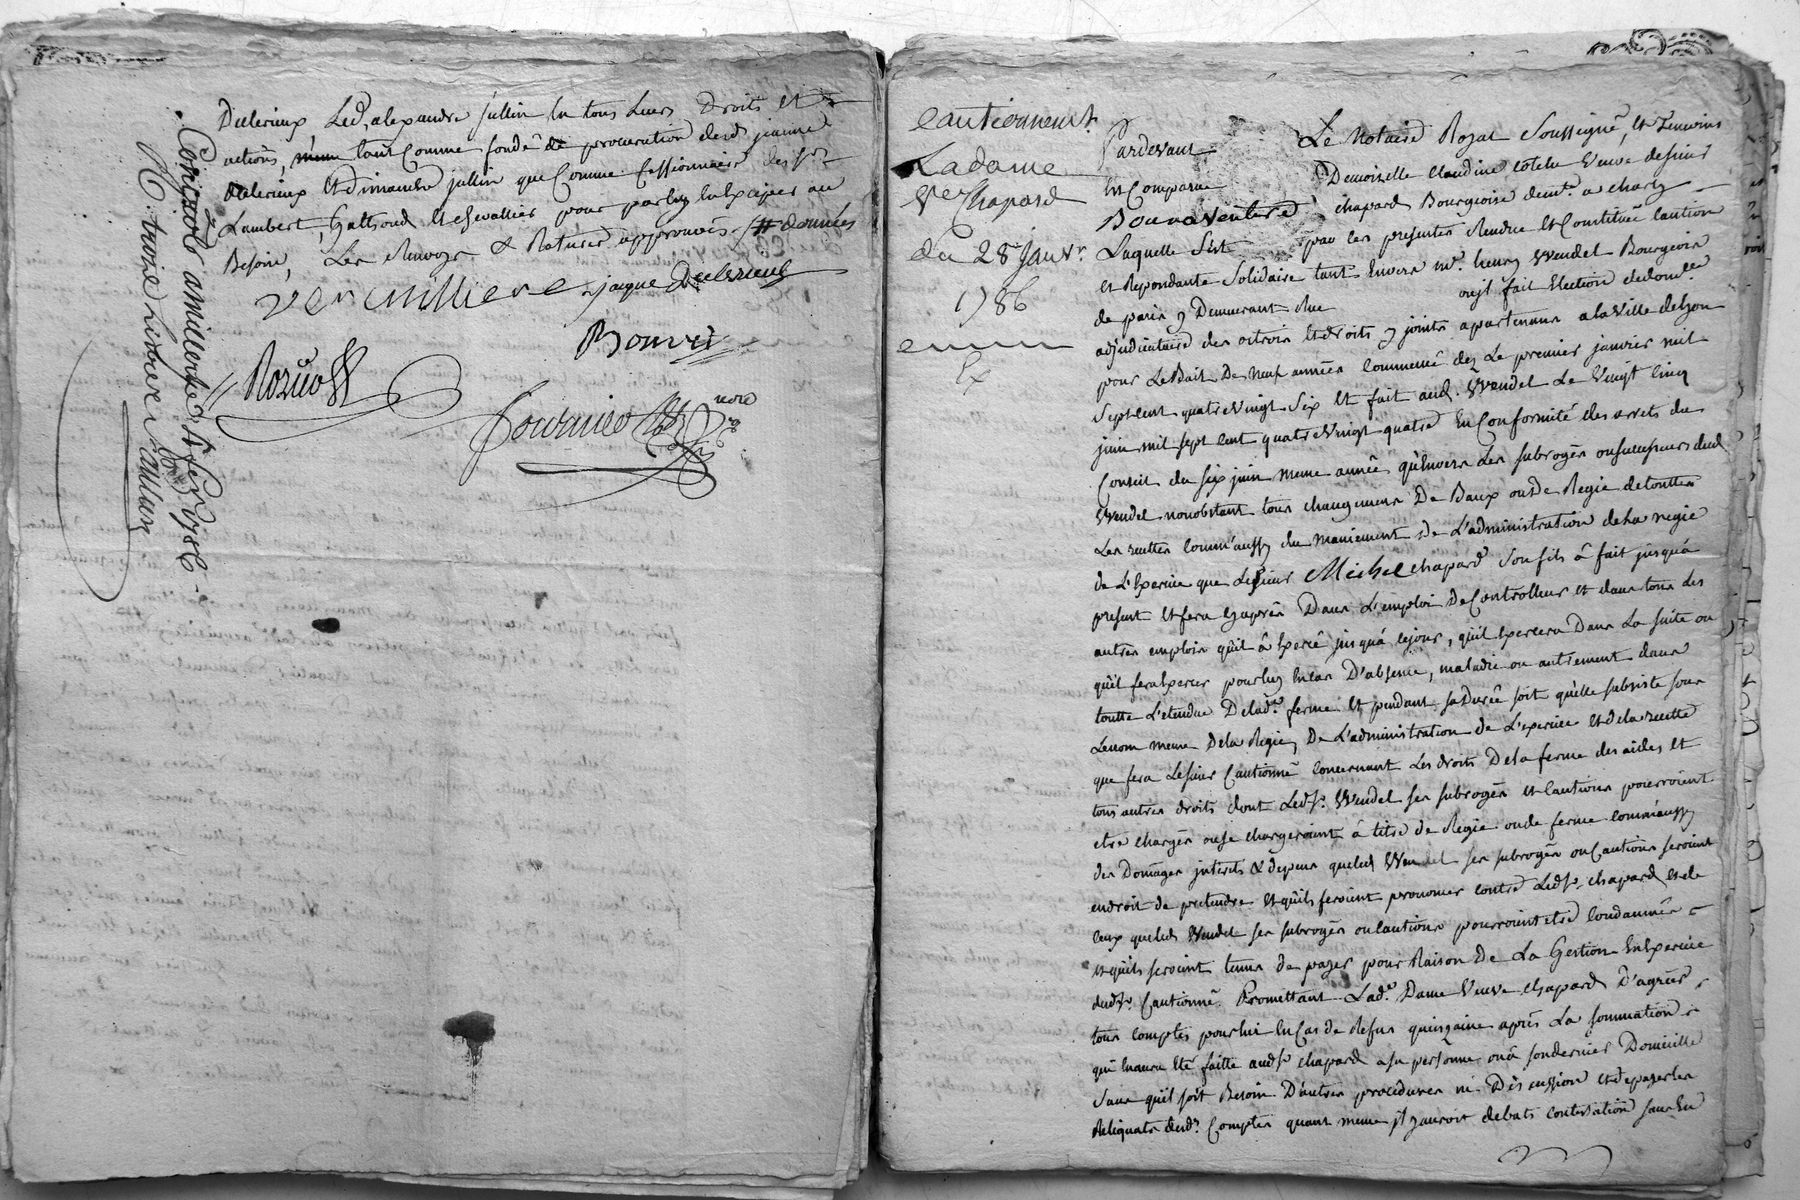 Duclerieux, Led. alexandre jullin en tous Leurs Droits et
actions, tant Comme fondé de procuration desd. jeanne
Duclerieux et dimanche jullin que Comme Cessionnaire des srs
Lambert, Gattsoud et chevallier pour par luy En Expajer au
Besoin, Les Renvoys & Ratures approuvés # données
Vercuilliere jacque Duclerieux
Bouvet
Rozier
not. re
Controlé
Reçu treize Livres
cautionnement
La dame
Ve. Chapard
du 28 Janvr.
1786
Ex
Pardevant Le Notaire Royal Soussigné, et Temoins
En Comparue Demoiselle Claudine veuve de sieur
Bonaventure chapard Bourgeoise demte. a charly
Laquelle s'est par ces presentes Rendue et Constituée Caution
et Repondante Solidaire tant Envers mr. henry Wendel Bourgeois
de paris y Demeurant Rue ou jl fait Election de dom.le
adjudicataire des octrois et droits y joints apartenans a la Ville de Lyon
pour Le Bail De neuf années Commencé dez Le premier janvier mil
Sept Cent quatre Vingt Six et fait aud. Wendel Le Vingt Cinq
juin mil sept Cent quatre Vingt quatre En Conformité des arrets du
Conseil du six juin meme année qu'Envers Les subrogés ou successeurs dud.
Wendel nonobstant tous changemens De Baux ou De Regie de touttes
Les recettes Comm'aussy du Maniement De L'administration de La regie
de L'Exercice que Le sieur Michel chapard son fils â fait jusqu'à
present et fera cy après Dans L'emploi De Controlleur et dans tous Les
autres emplois qu'il â Exercé jusqu'à ce jour, qu'il Exercera Dans La suite ou
qu'il fera Exercer pour luy En Cas D'absence, maladie ou autrement dans
toutte L'etendue De lad. ferme et pendant sa Durée soit qu'elle subsiste sous
Le nom meme De la Regie, De L'administration de L'exercice et de la recette
que fera Le sieur Cautionné Concernant Les droits De la ferme des aides et
tous autres droits dont Led. sr. Wendel ses subrogés et Cautions pourroient
etre chargés ou se chargeroient à titre de Regie ou de ferme comm'aussy
des Domages interets & depens que led. Wendel ses subrogés ou Cautions seroient
en droit de pretendre et qu'ils feroient prononcer contre Led. sr. chapard et de
ceux que led. Wendel ses subrogés ou Cautions pourroient etre Condamnés
et qu'ils seroient tenus de payer pour Raison de La Gestion En Exercice
dud. sr. Cautionné. Promettant Lad. Dame Veuve chapard D'agréer
tous comptes pour lui En Cas de Refus quinzaine après La sommation
qui En aura Eté faitte aud. sr. chapard a sa personne ou à son dernier Domicille
Sans qu'il soit Besoin D'autres procedures ni Discussion et de payer Les
Reliquats desd. Comptes quant meme jl y auroit debats contestation sans En